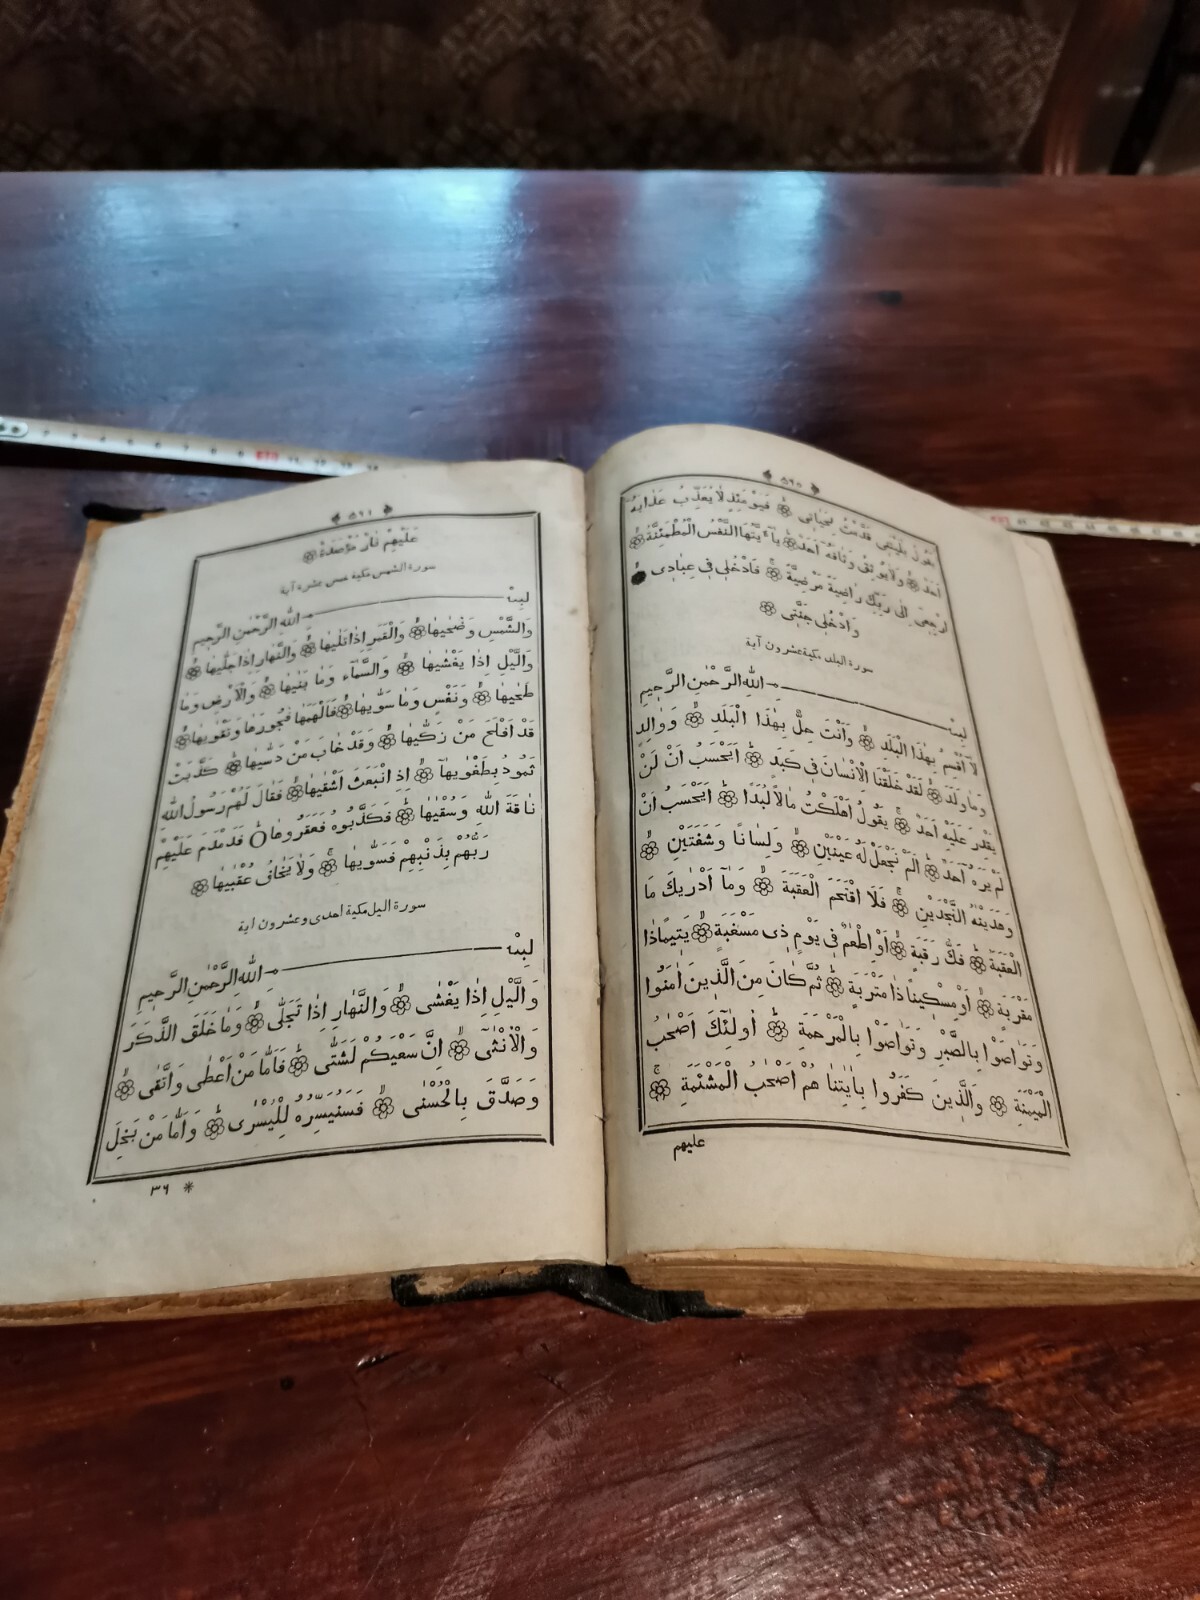 ٥٦٠
يَقُولُ يٰلَيْتَنِى قَدَّمْتُ لِحَيَاتِى ۞ فَيَوْمَئِذٍ لَا يُعَذِّبُ عَذَابَهُ
اَحَدٌ ۞ وَلَا يُوثِقُ وَثَاقَهُ اَحَدٌ ۞ يَآ اَيَّتُهَا النَّفْسُ الْمُطْمَئِنَّةُ ۞
اِرْجِعِى اِلٰى رَبِّكِ رَاضِيَةً مَرْضِيَّةً ۞ فَادْخُلِى فِى عِبَادِى ۞
وَادْخُلِى جَنَّتِى ۞
سورة البلد مكية عشرون آية
بِسْمِ اللهِ الرَّحْمٰنِ الرَّحِيمِ
لَآ اُقْسِمُ بِهٰذَا الْبَلَدِ ۞ وَاَنْتَ حِلٌّ بِهٰذَا الْبَلَدِ ۞ وَوَالِدٍ
وَمَا وَلَدَ ۞ لَقَدْ خَلَقْنَا الْاِنْسَانَ فِى كَبَدٍ ۞ اَيَحْسَبُ اَنْ لَنْ
يَقْدِرَ عَلَيْهِ اَحَدٌ ۞ يَقُولُ اَهْلَكْتُ مَالًا لُبَدًا ۞ اَيَحْسَبُ اَنْ
لَمْ يَرَهُ اَحَدٌ ۞ اَلَمْ نَجْعَلْ لَهُ عَيْنَيْنِ ۞ وَلِسَانًا وَشَفَتَيْنِ ۞
وَهَدَيْنَاهُ النَّجْدَيْنِ ۞ فَلَا اقْتَحَمَ الْعَقَبَةَ ۞ وَمَآ اَدْرٰيكَ مَا
الْعَقَبَةُ ۞ فَكُّ رَقَبَةٍ ۞ اَوْ اِطْعَامٌ فِى يَوْمٍ ذِى مَسْغَبَةٍ ۞ يَتِيمًا ذَا
مَقْرَبَةٍ ۞ اَوْ مِسْكِينًا ذَا مَتْرَبَةٍ ۞ ثُمَّ كَانَ مِنَ الَّذِينَ اٰمَنُوا
وَتَوَاصَوْا بِالصَّبْرِ وَتَوَاصَوْا بِالْمَرْحَمَةِ ۞ اُولٰٓئِكَ اَصْحَابُ
الْمَيْمَنَةِ ۞ وَالَّذِينَ كَفَرُوا بِاٰيَاتِنَا هُمْ اَصْحَابُ الْمَشْئَمَةِ ۞
عليهم
٥٦١
عَلَيْهِمْ نَارٌ مُؤْصَدَةٌ ۞
سورة الشمس مكية خمس عشرة آية
بِسْمِ اللهِ الرَّحْمٰنِ الرَّحِيمِ
وَالشَّمْسِ وَضُحٰيهَا ۞ وَالْقَمَرِ اِذَا تَلٰيهَا ۞ وَالنَّهَارِ اِذَا جَلّٰيهَا ۞
وَالَّيْلِ اِذَا يَغْشٰيهَا ۞ وَالسَّمَآءِ وَمَا بَنٰيهَا ۞ وَالْاَرْضِ وَمَا
طَحٰيهَا ۞ وَنَفْسٍ وَمَا سَوّٰيهَا ۞ فَاَلْهَمَهَا فُجُورَهَا وَتَقْوٰيهَا ۞
قَدْ اَفْلَحَ مَنْ زَكّٰيهَا ۞ وَقَدْ خَابَ مَنْ دَسّٰيهَا ۞ كَذَّبَتْ
ثَمُودُ بِطَغْوٰيهَا ۞ اِذِ انْبَعَثَ اَشْقٰيهَا ۞ فَقَالَ لَهُمْ رَسُولُ اللهِ
نَاقَةَ اللهِ وَسُقْيٰهَا ۞ فَكَذَّبُوهُ فَعَقَرُوهَا ۞ فَدَمْدَمَ عَلَيْهِمْ
رَبُّهُمْ بِذَنْبِهِمْ فَسَوّٰيهَا ۞ وَلَا يَخَافُ عُقْبٰيهَا ۞
سورة اليل مكية احدى وعشرون آية
بِسْمِ اللهِ الرَّحْمٰنِ الرَّحِيمِ
وَالَّيْلِ اِذَا يَغْشٰى ۞ وَالنَّهَارِ اِذَا تَجَلّٰى ۞ وَمَا خَلَقَ الذَّكَرَ
وَالْاُنْثٰىٓ ۞ اِنَّ سَعْيَكُمْ لَشَتّٰى ۞ فَاَمَّا مَنْ اَعْطٰى وَاتَّقٰى ۞
وَصَدَّقَ بِالْحُسْنٰى ۞ فَسَنُيَسِّرُهُ لِلْيُسْرٰى ۞ وَاَمَّا مَنْ بَخِلَ
٣٦ *